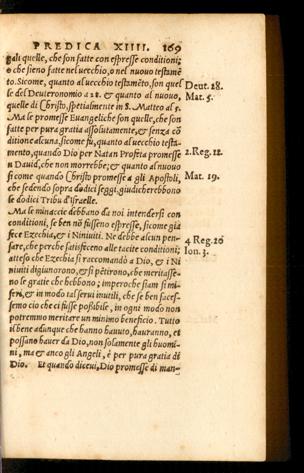 PREDICA XIIII. 169
gali quelle, che son fatte con espresse conditioni;
o che sieno fatte nel uecchio, o nel nuouo testamē
to. Sicome, quanto al uecchio testamēto, son quel
le del Deuteronomio a 28. & quanto al nuouo, Deut. 28.
quelle di Christo, spetialmente in S. Matteo al 5. Mat. 5.
Ma le promesse Euangeliche son quelle, che son
fatte per pura gratia assolutamente, & senza cō
ditione alcuna, sicome fu, quanto al uecchio testa-
mento, quando Dio per Natan Profeta promesse 2. Reg. 12.
a Dauid, che non morrebbe; & quanto al nuouo
si come quando Christo promesse a gli Apostoli, Mat. 19.
che sedendo sopra dodici seggi, giudicherebbono
le dodici Tribu d'Israelle.
Ma le minaccie debbano da noi intendersi con
conditioni, se ben nō fussino espresse, sicome gia
fece Ezechia, & i Niniuiti. Ne debbe alcun pen- 4 Reg. 20
sare, che perche satisfeceno alle tacite conditioni; Ion. 3.
atteso che Ezechia si raccomandò a Dio, & i Ni
niuiti digiunorono, & si pētirono, che meritasse-
no le gratie che hebbono; imperoche siam si mi-
seri, & in modo tal serui inutili, che se ben faces-
semo cio che ci fusse possibile, in ogni modo non
potremmo meritare un minimo beneficio. Tutto
il bene adunque che hanno hauuto, hauranno, et
possano hauer da Dio, non solamente gli huomi-
ni, ma & anco gli Angeli, è per pura gratia di
Dio. Et quando diceui, Dio promesse di man-